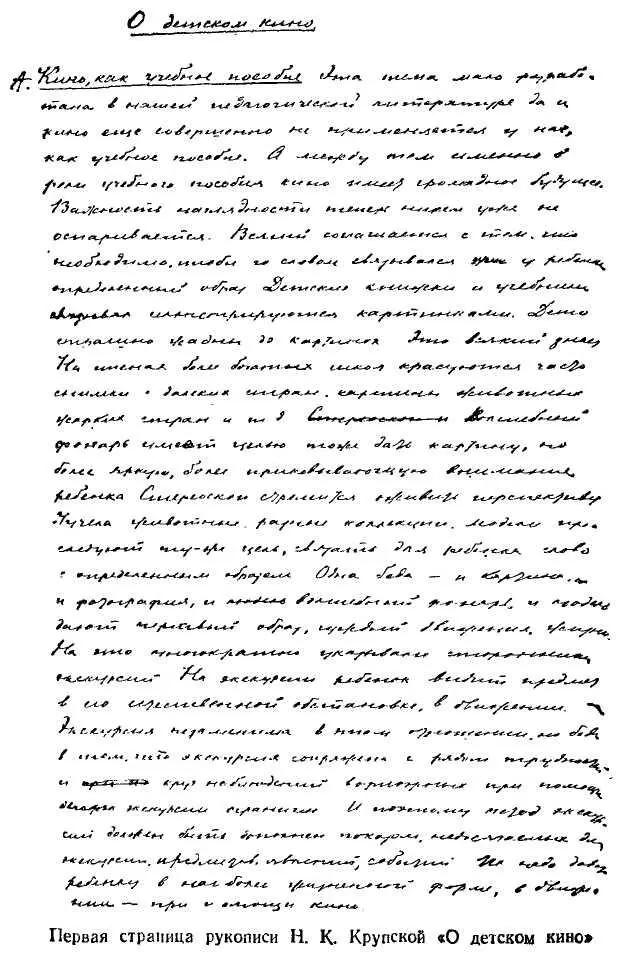 О детском кино
А. Кино, как учебное пособие Эта тема мало разрабо-
тана в нашей педагогической литературе да и
кино еще совершенно не применяется у нас,
как учебное пособие. А между тем именно в
роли учебного пособия кино имеет громадное будущее.
Важность наглядности теперь никем уже не
оспаривается. Всякий соглашается с тем, что
необходимо, чтобы со словом связывался у ребенка
определенный образ Детские книжки и учебники
иллюстрируются картинками. Дети
страшно жадны до картинок Это всякий знает
На стенах более богатых школ красуются часто
снимки с далеких стран, картины животных
жарких стран и т д Стереоскоп и Волшебный
фонарь имеет целью тоже дать картину, но
более яркую, более приковывающую внимание
ребенка Стереоскоп стремится оживить перспективу
Чучела животных, разные коллекции, модели пре-
следуют ту-же цель, связать для ребенка слово
с определенным образом Одна беда — и картина,
и фотография, и волшебный фонарь, и
дают мертвый образ, чуждый движения, жизни.
На это многократно указывали сторонники
экскурсий На экскурсии ребенок видит предмет
в его естественной обстановке, в движении.
Экскурсия незаменима в этом отношении, но беда
в том, что экскурсия сопряжена с рядом трудностей
и круг наблюдений при помощи
экскурсии ограничен И поэтому метод экскур-
сий должен быть дополнен показом, недосягаемых для
экскурсии, предметов, явлений, событий Их надо давать
ребенку в наиболее жизненной форме, в движе-
нии — при помощи кино
Первая страница рукописи Н. К. Крупской «О детском кино»